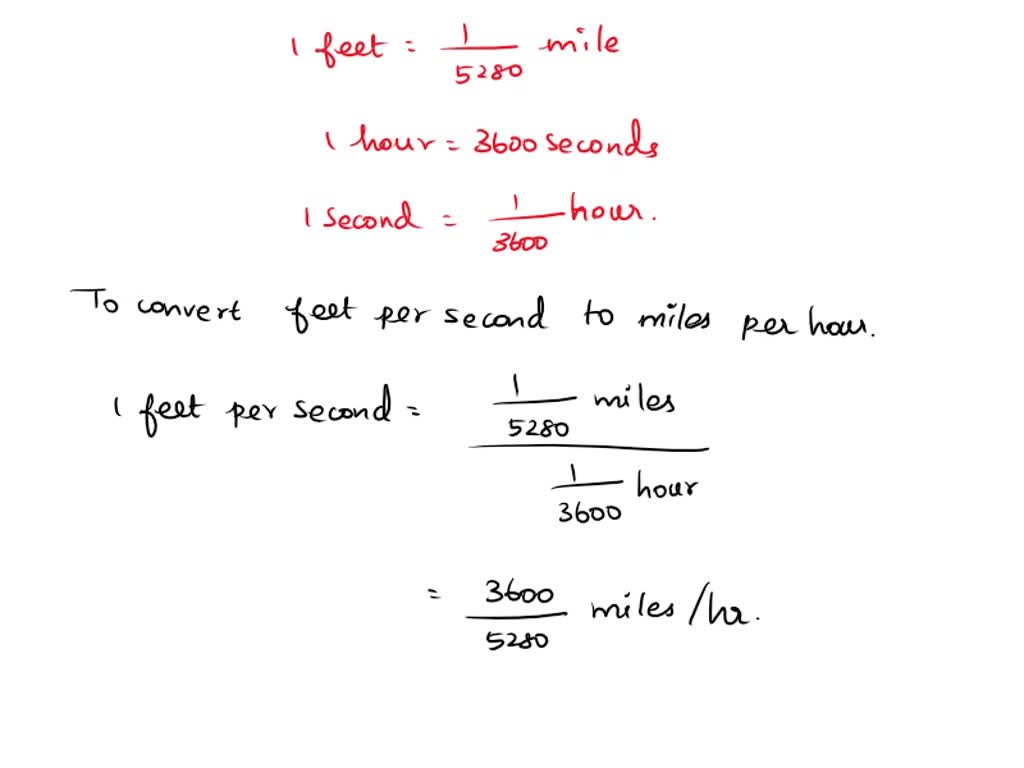 1 feet = 1/5280 mile
1 hour = 3600 seconds
1 second = 1/3600 hour.
To convert feet per second to miles per hour.
1 feet per second = 1/5280 miles / 1/3600 hour
= 3600/5280 miles/hr.